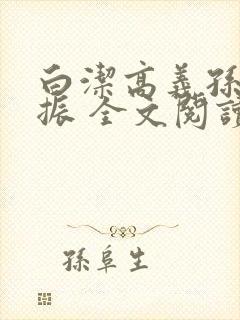 白潔高義孫
振 全文閱讀
孫阜生